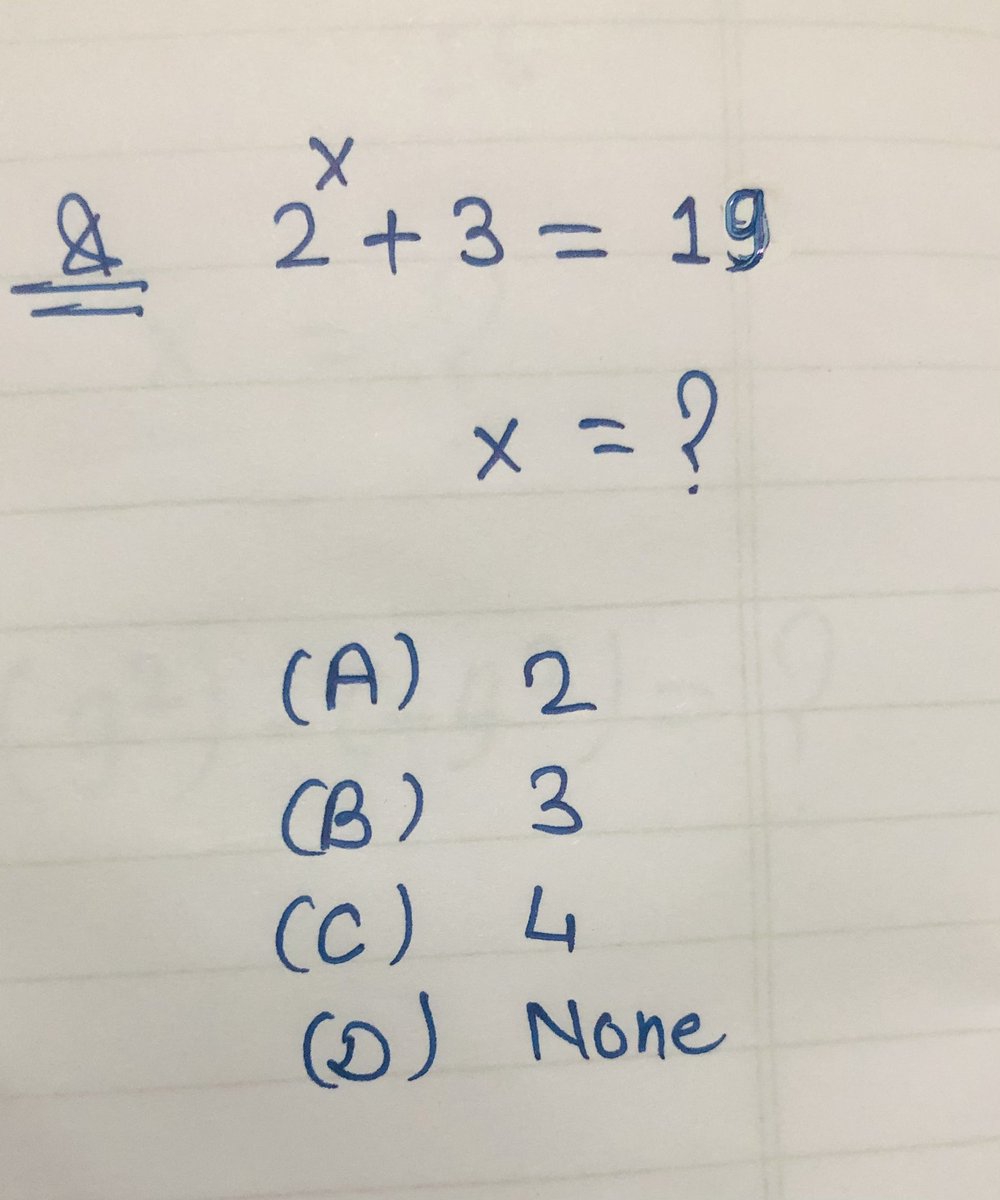 Q 2ˣ + 3 = 19
x = ?
(A) 2
(B) 3
(C) 4
(D) None